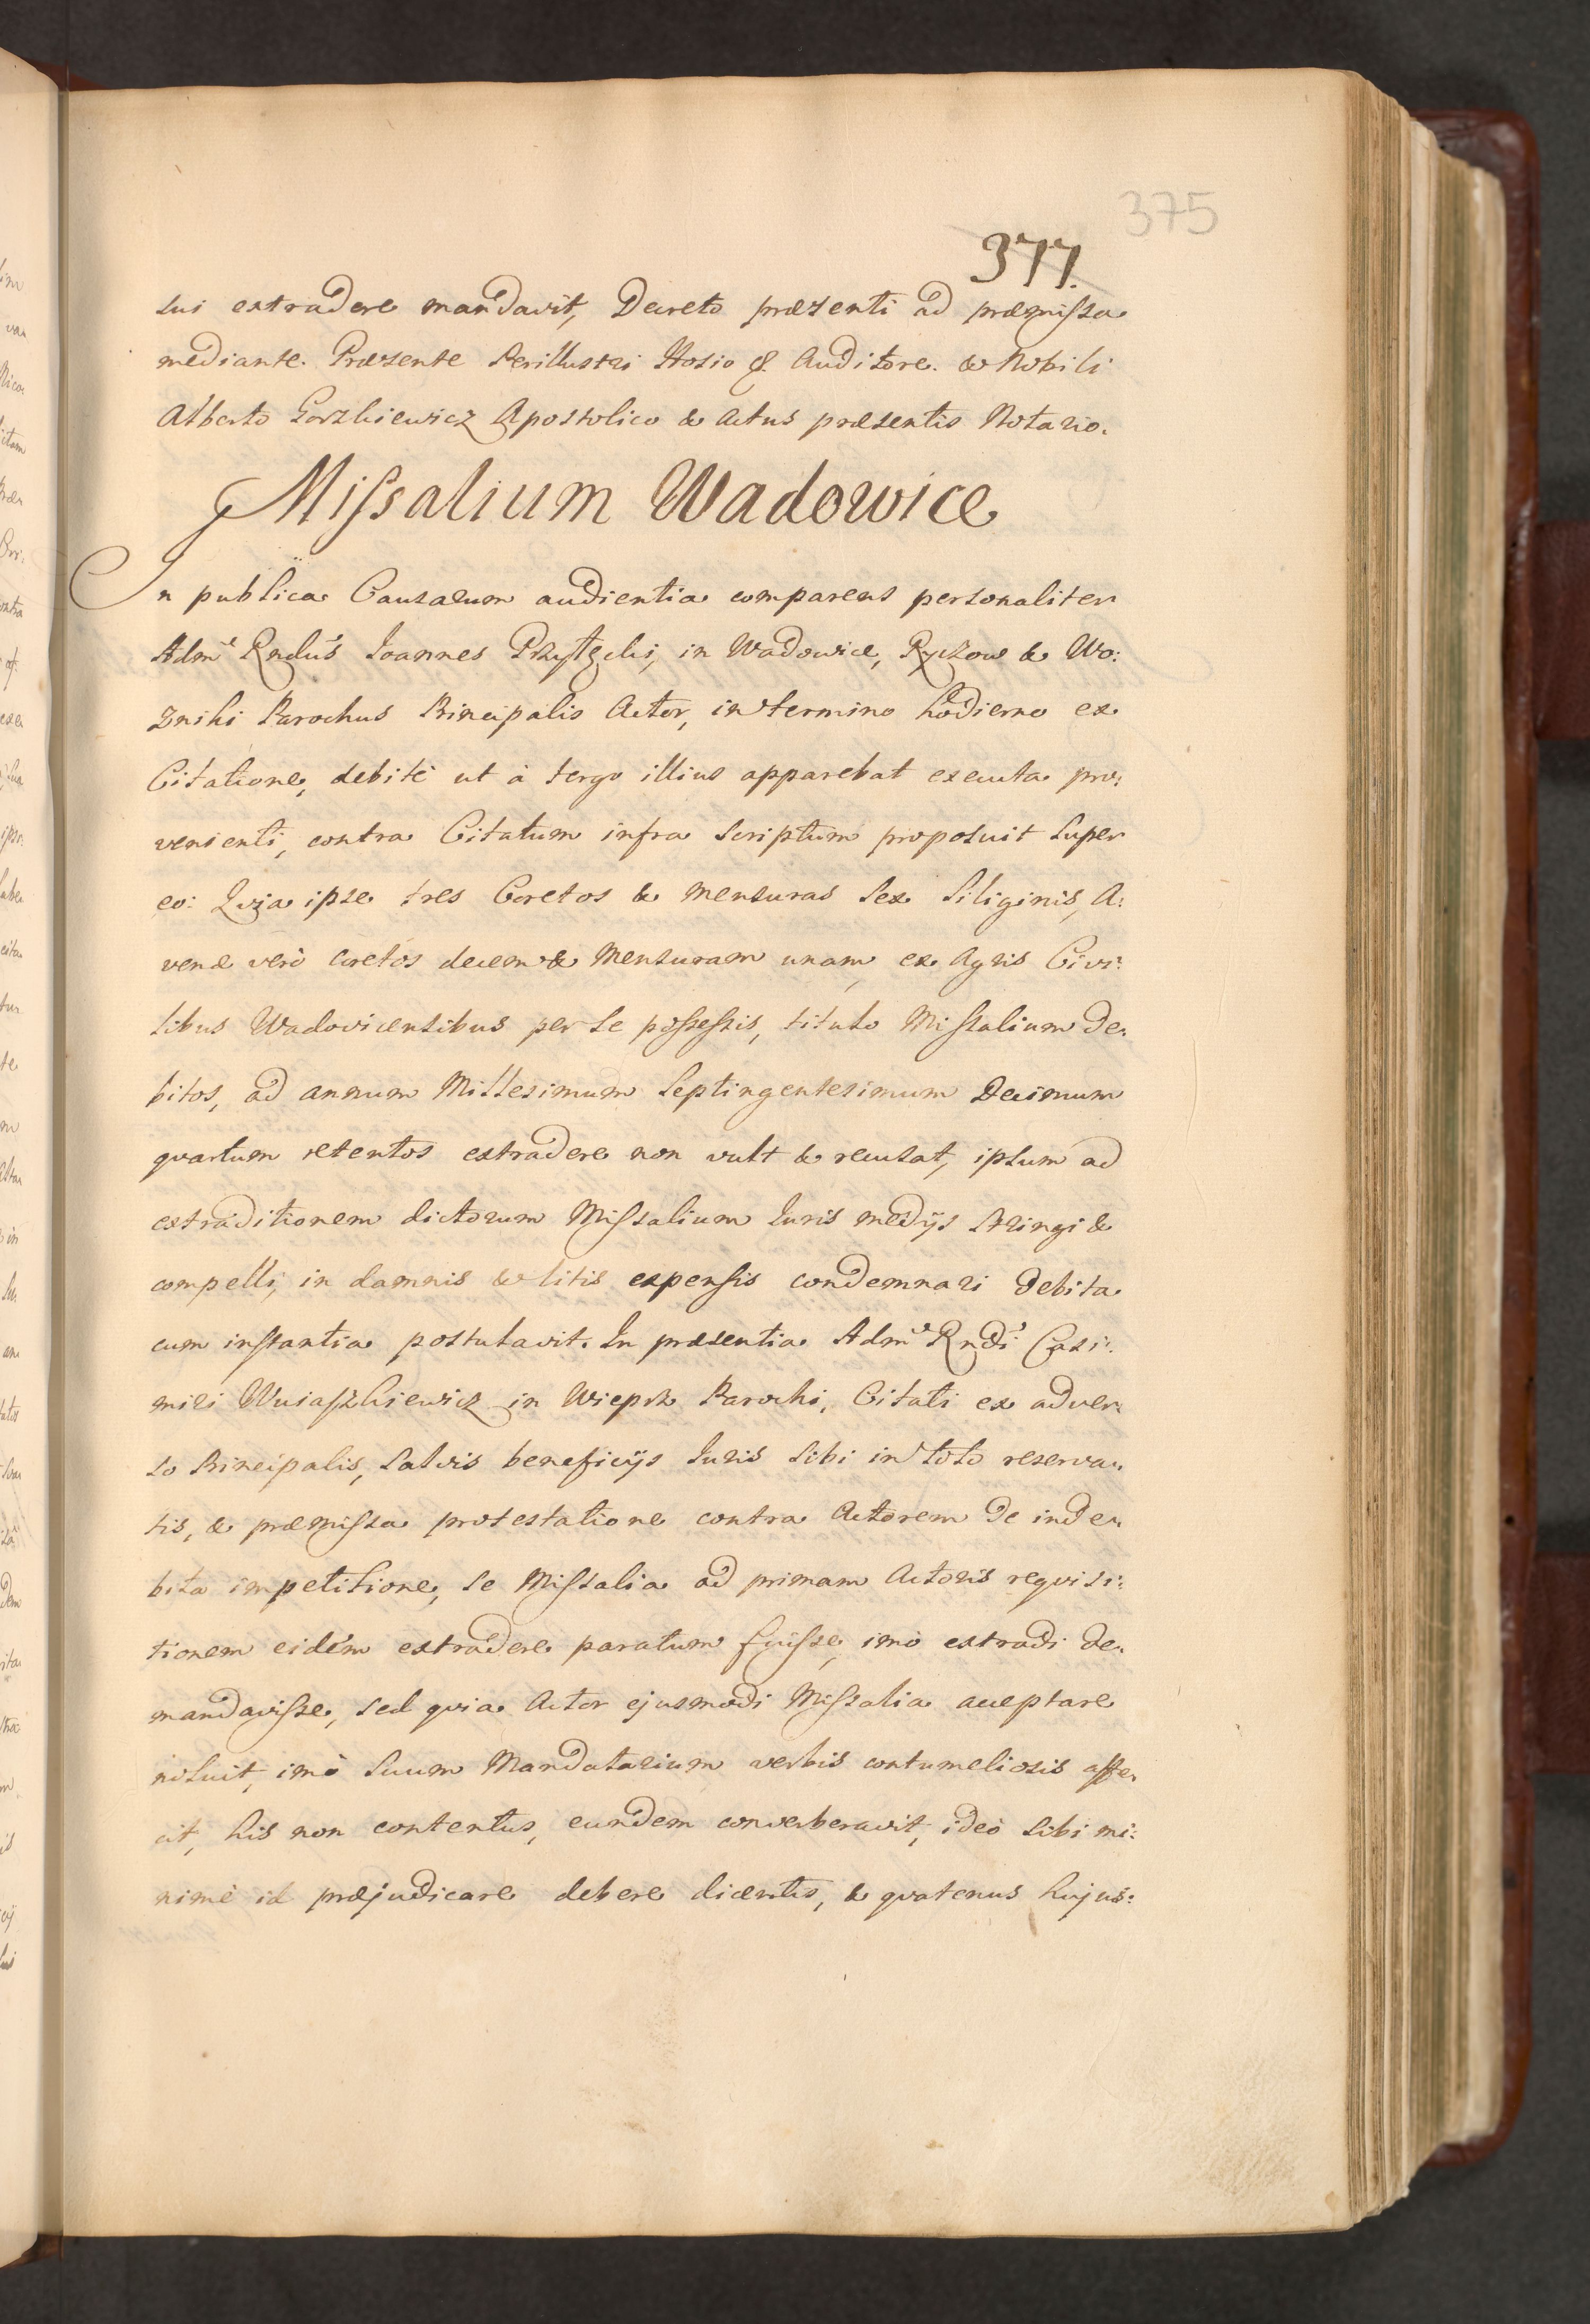 375
377.
sui extradere mandavit, Decreto præsenti ad præmissa
mediante. Præsente Perillustri Hosio & Auditore. & Nobili
Alberto Gorzkiewicz Apostolico & Actus præsentis Notario.
Missalium Wadowice
In publica Causarum audientia comparens personaliter
Adm Rndus Ioannes Przytzcki, in Wadowice, Ryczow & Wo:
zniki Parochus Principalis Actor, in termino hodierno ex
Citatione, debitè ut à tergo illius apparebat executa pro:
venienti, contra Citatum infra scriptum proposuit super
eo: Quia ipse tres Coretos & mensuras sex siliginis, A:
venæ verò coretos decem & Mensuram unam, ex Agris Civi:
libus Wadovicensibus per se possessis, titulo Missalium de:
bitos, ad annum Millesimum Septingentesimum Decimum
quartum retentos extradere non vult & recusat, ipsum ad
extraditionem dictorum Missalium Iuris medijs stringi &
compelli, in damnis & litis expensis condemnari debita
cum instantia postulavit. In præsentia Adm Rndi Casi:
miri Wuiaszkiewicz in Wieprz Parochi, Citati ex adver:
so Principalis, salvis beneficijs Iuris sibi in toto reserva:
tis, & præmissa protestatione contra Actorem de inde:
bita impetitione, se Missalia ad primam Actoris requisi:
tionem eidem extradere paratum fuisse, imò extradi de:
mandavisse, sed quia Actor ejusmodi Missalia acceptare
noluit, imò suum Mandatarium verbis contumeliosis affe:
cit, his non contentus, eundem converberavit, ideò sibi mi:
nimè id præjudicare debere dicentis, & quatenus hujus: